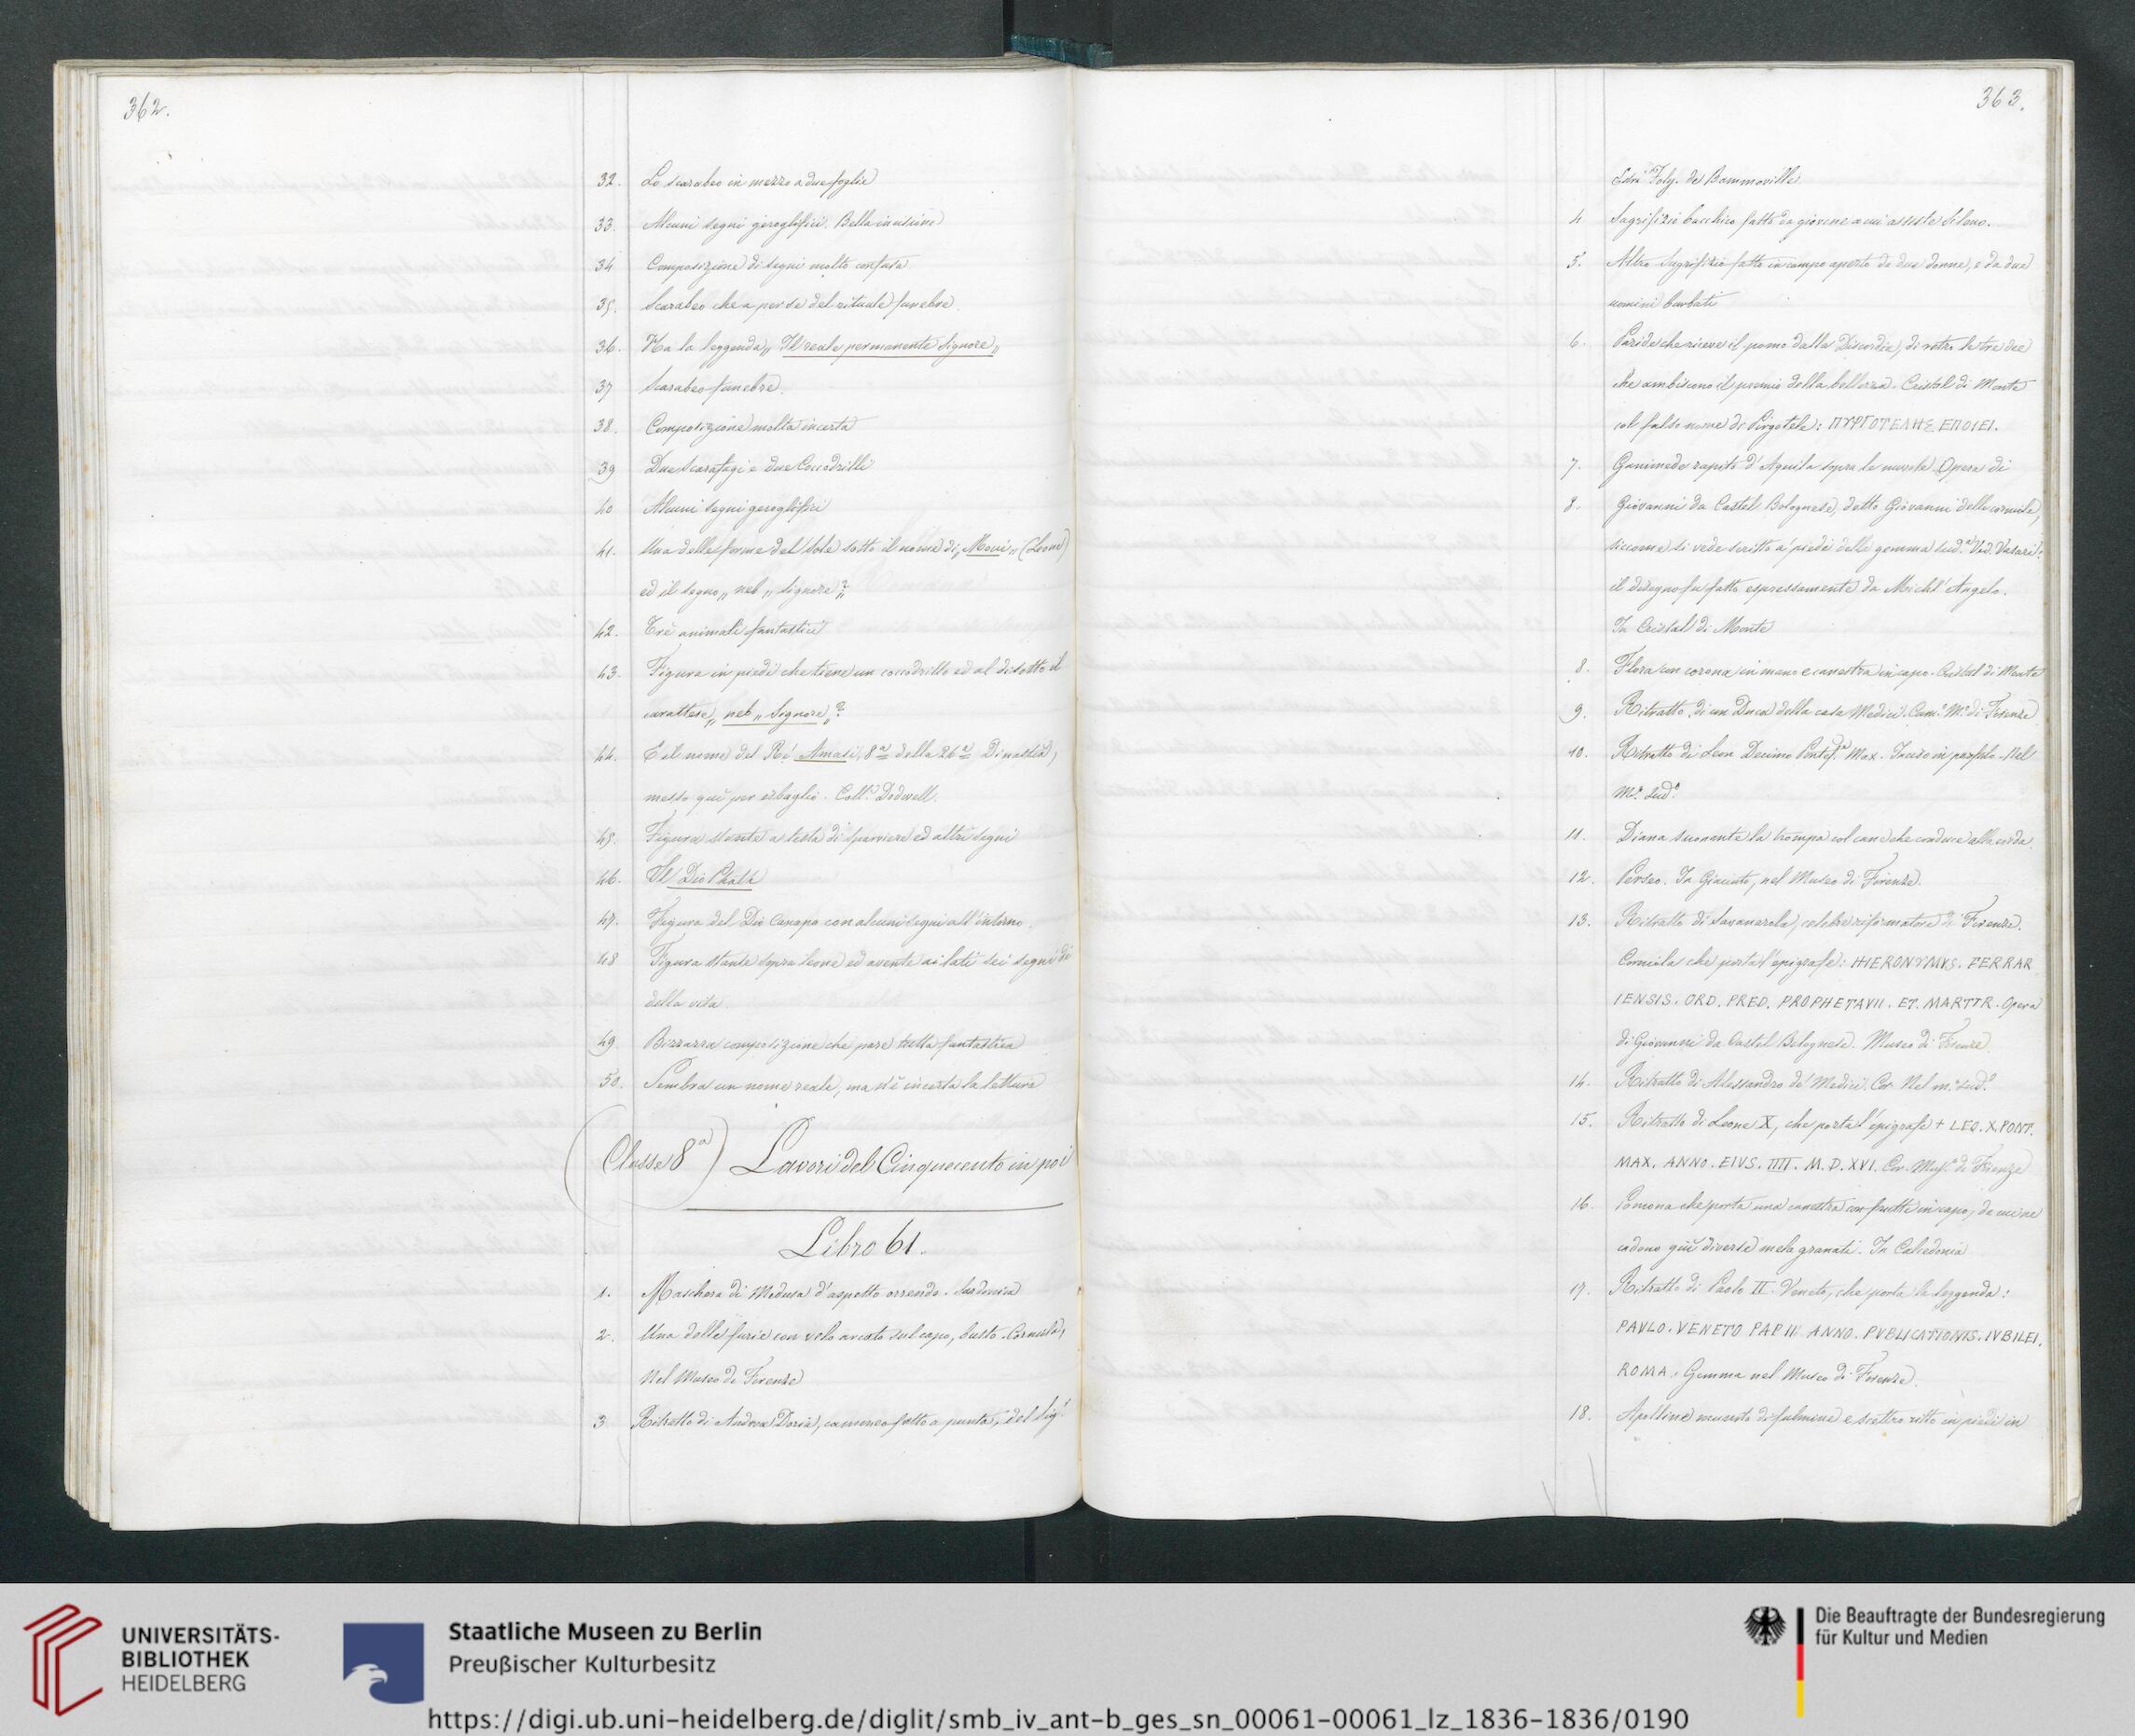 362.
32. Lo scarabeo in mezzo a due foglie
33. Alcuni segni geroglifici. Bella incisione
34 Composizione di segni molto confusa
35. Scarabeo che a per se del rituale funebre
36. Ha la leggenda „ Il reale permanente Signore „
37 Scarabeo funebre.
38. Composizione molto incerta
39 Due Scarafagi e due Coccodrilli
40 Alcuni segni geroglifici
41. Una delle forme del Sole sotto il nome di „ Moui „ (Leone)
ed il segno „ neb „ signore „?
42. Trè animali fantastici
43. Figura in piedi che tiene un coccodrillo ed al disotto il
carattere „ neb „ Signore „?
44. È il nome del Ré Amasi, 8ª della 26ª Dinastia,
messo quì per isbaglio. Coll.e Dodwell.
45. Figura stante a testa di sparviere ed altri segni
46. Il Dio Phath
47. Figura del Dio Canapo con alcuni segni all'intorno.
48 Figura stante sopra leone ed avente ai lati sei segni di
della vita.
49. Bizzarra composizione che pare tutta fantastica
50. Sembra un nome reale, ma n'è incerta la lettura
(Classe 8ª) Lavori del Cinquecento in poi
Libro 61.
1. Maschera di Medusa d'aspetto orrendo. Sardonica
2. Una delle furie con velo arcato sul capo, busto. Corniola,
Nel Museo di Firenze
3 Ritratto di Andrea Doria, cammeo fatto a punta, del Sig.r
363.
Joly. de Bammeville
4 Sagrifizio bacchico fatto da giovene a cui assiste Sileno.
5. Altro Sagrifizio fatto in campo aperto da due donne, e da due
uomini barbati
6. Paride che riceve il pomo dalla Discordia, di retro le tre dee
che ambiscono il premio della bellezza. Cristal di Monte
col falso nome di Pirgotele: ΠΥΡΓΟΤΕΛΗΣ ΕΠΟΙΕΙ.
7. Ganimede rapito d'Aquila sopra le nuvole. Opera di
8. Giovanni da Castel Bolognese, detto Giovanni delle corniole,
siccome si vede scritto a' piedi della gemma sud.a Ved. Vasari.
il disegno fu fatto espressamente da Michel'Angelo.
In Cristal di Monte
8. Flora con corona in mano e canestra in capo. Cristal di Monte
9. Ritratto di un Duca della casa Medici. Cam.o M.o di Firenze
10. Ritratto di Leon Decimo Pontef.e Max. Inciso in porfido. Nel
M.o sud.o
11. Diana suonante la trompa col cane che conduce alla corda.
12. Perseo. In Giacinto, nel Museo di Firenze.
13. Ritratto di Savanarola, celebre riformatore di Firenze.
Corniola che porta l'epigrafe: HIERONYMVS. FERRAR
IENSIS. ORD. PRED. PROPHETAVII. ET. MARTTR. Opera
di Giovanni da Castel Bolognese. Museo di Firenze
14. Ritratto di Alessandro de' Medici. Cor. Nel m.o sud.o
15. Ritratto di Leone X, che porta l'epigrafe + LEO. X. PONT.
MAX. ANNO. EIVS. IIII. M. D. XVI. Cor. Mus.o di Firenze
16. Pomona che porta una canestra con frutti in capo, da cui ne
cadono giù diverse mela granati. In Calcedonia
17. Ritratto di Paolo II. Veneto, che porta la leggenda:
PAVLO. VENETO PAP II ANNO. PVBLICATIONIS. IVBILEI.
ROMA. Gemma nel Museo di Firenze.
18. Apolline munito di fulmine e scettro ritto in piedi in
UNIVERSITÄTS-
BIBLIOTHEK
HEIDELBERG
Staatliche Museen zu Berlin
Preußischer Kulturbesitz
Die Beauftragte der Bundesregierung
für Kultur und Medien
https://digi.ub.uni-heidelberg.de/diglit/smb_iv_ant-b_ges_sn_00061-00061_lz_1836-1836/0190